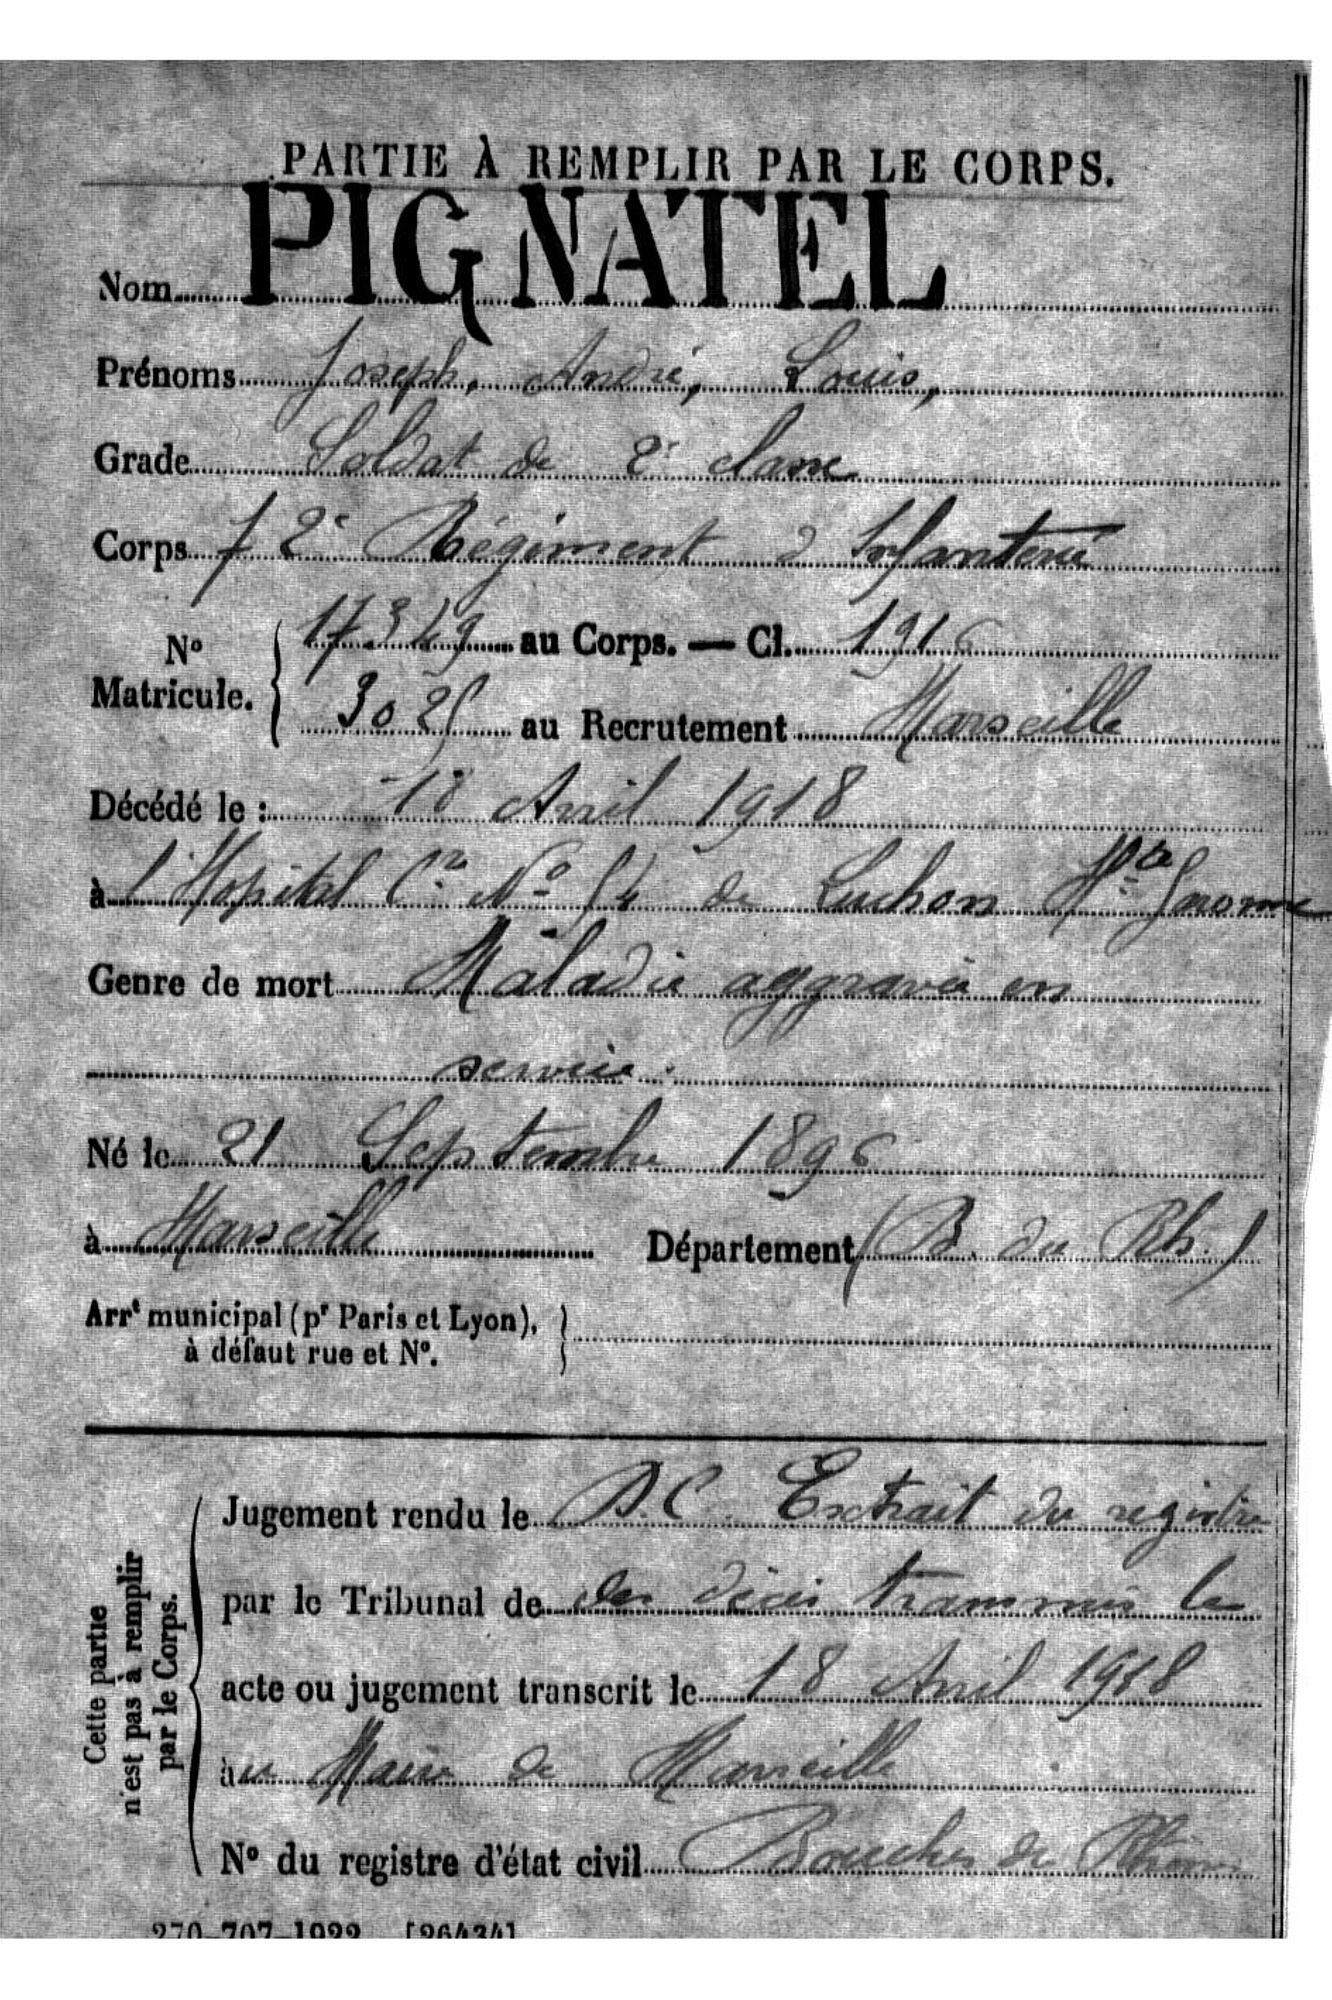 PARTIE À REMPLIR PAR LE CORPS.
Nom PIGNATEL
Prénoms Joseph, André, Louis,
Grade Soldat de 2e classe
Corps 72e Régiment d'Infanterie
No Matricule. { 17349 au Corps. — Cl. 1916
3025 au Recrutement Marseille
Décédé le : 18 Avril 1918
à l'Hopital Cre No 54 de Luchon Hte Garonne
Genre de mort Maladie aggravée en
service.
Né le 21 Septembre 1896
à Marseille Département (B. du Rh.)
Arrt municipal (pr Paris et Lyon),
à défaut rue et No.
Cette partie
n'est pas à remplir
par le Corps.
Jugement rendu le D.C. Extrait du registre
par le Tribunal de des décès transmis le
acte ou jugement transcrit le 18 Avril 1918
au Maire de Marseille
No du registre d'état civil Bouches du Rhône
270-707-1922 [26434]